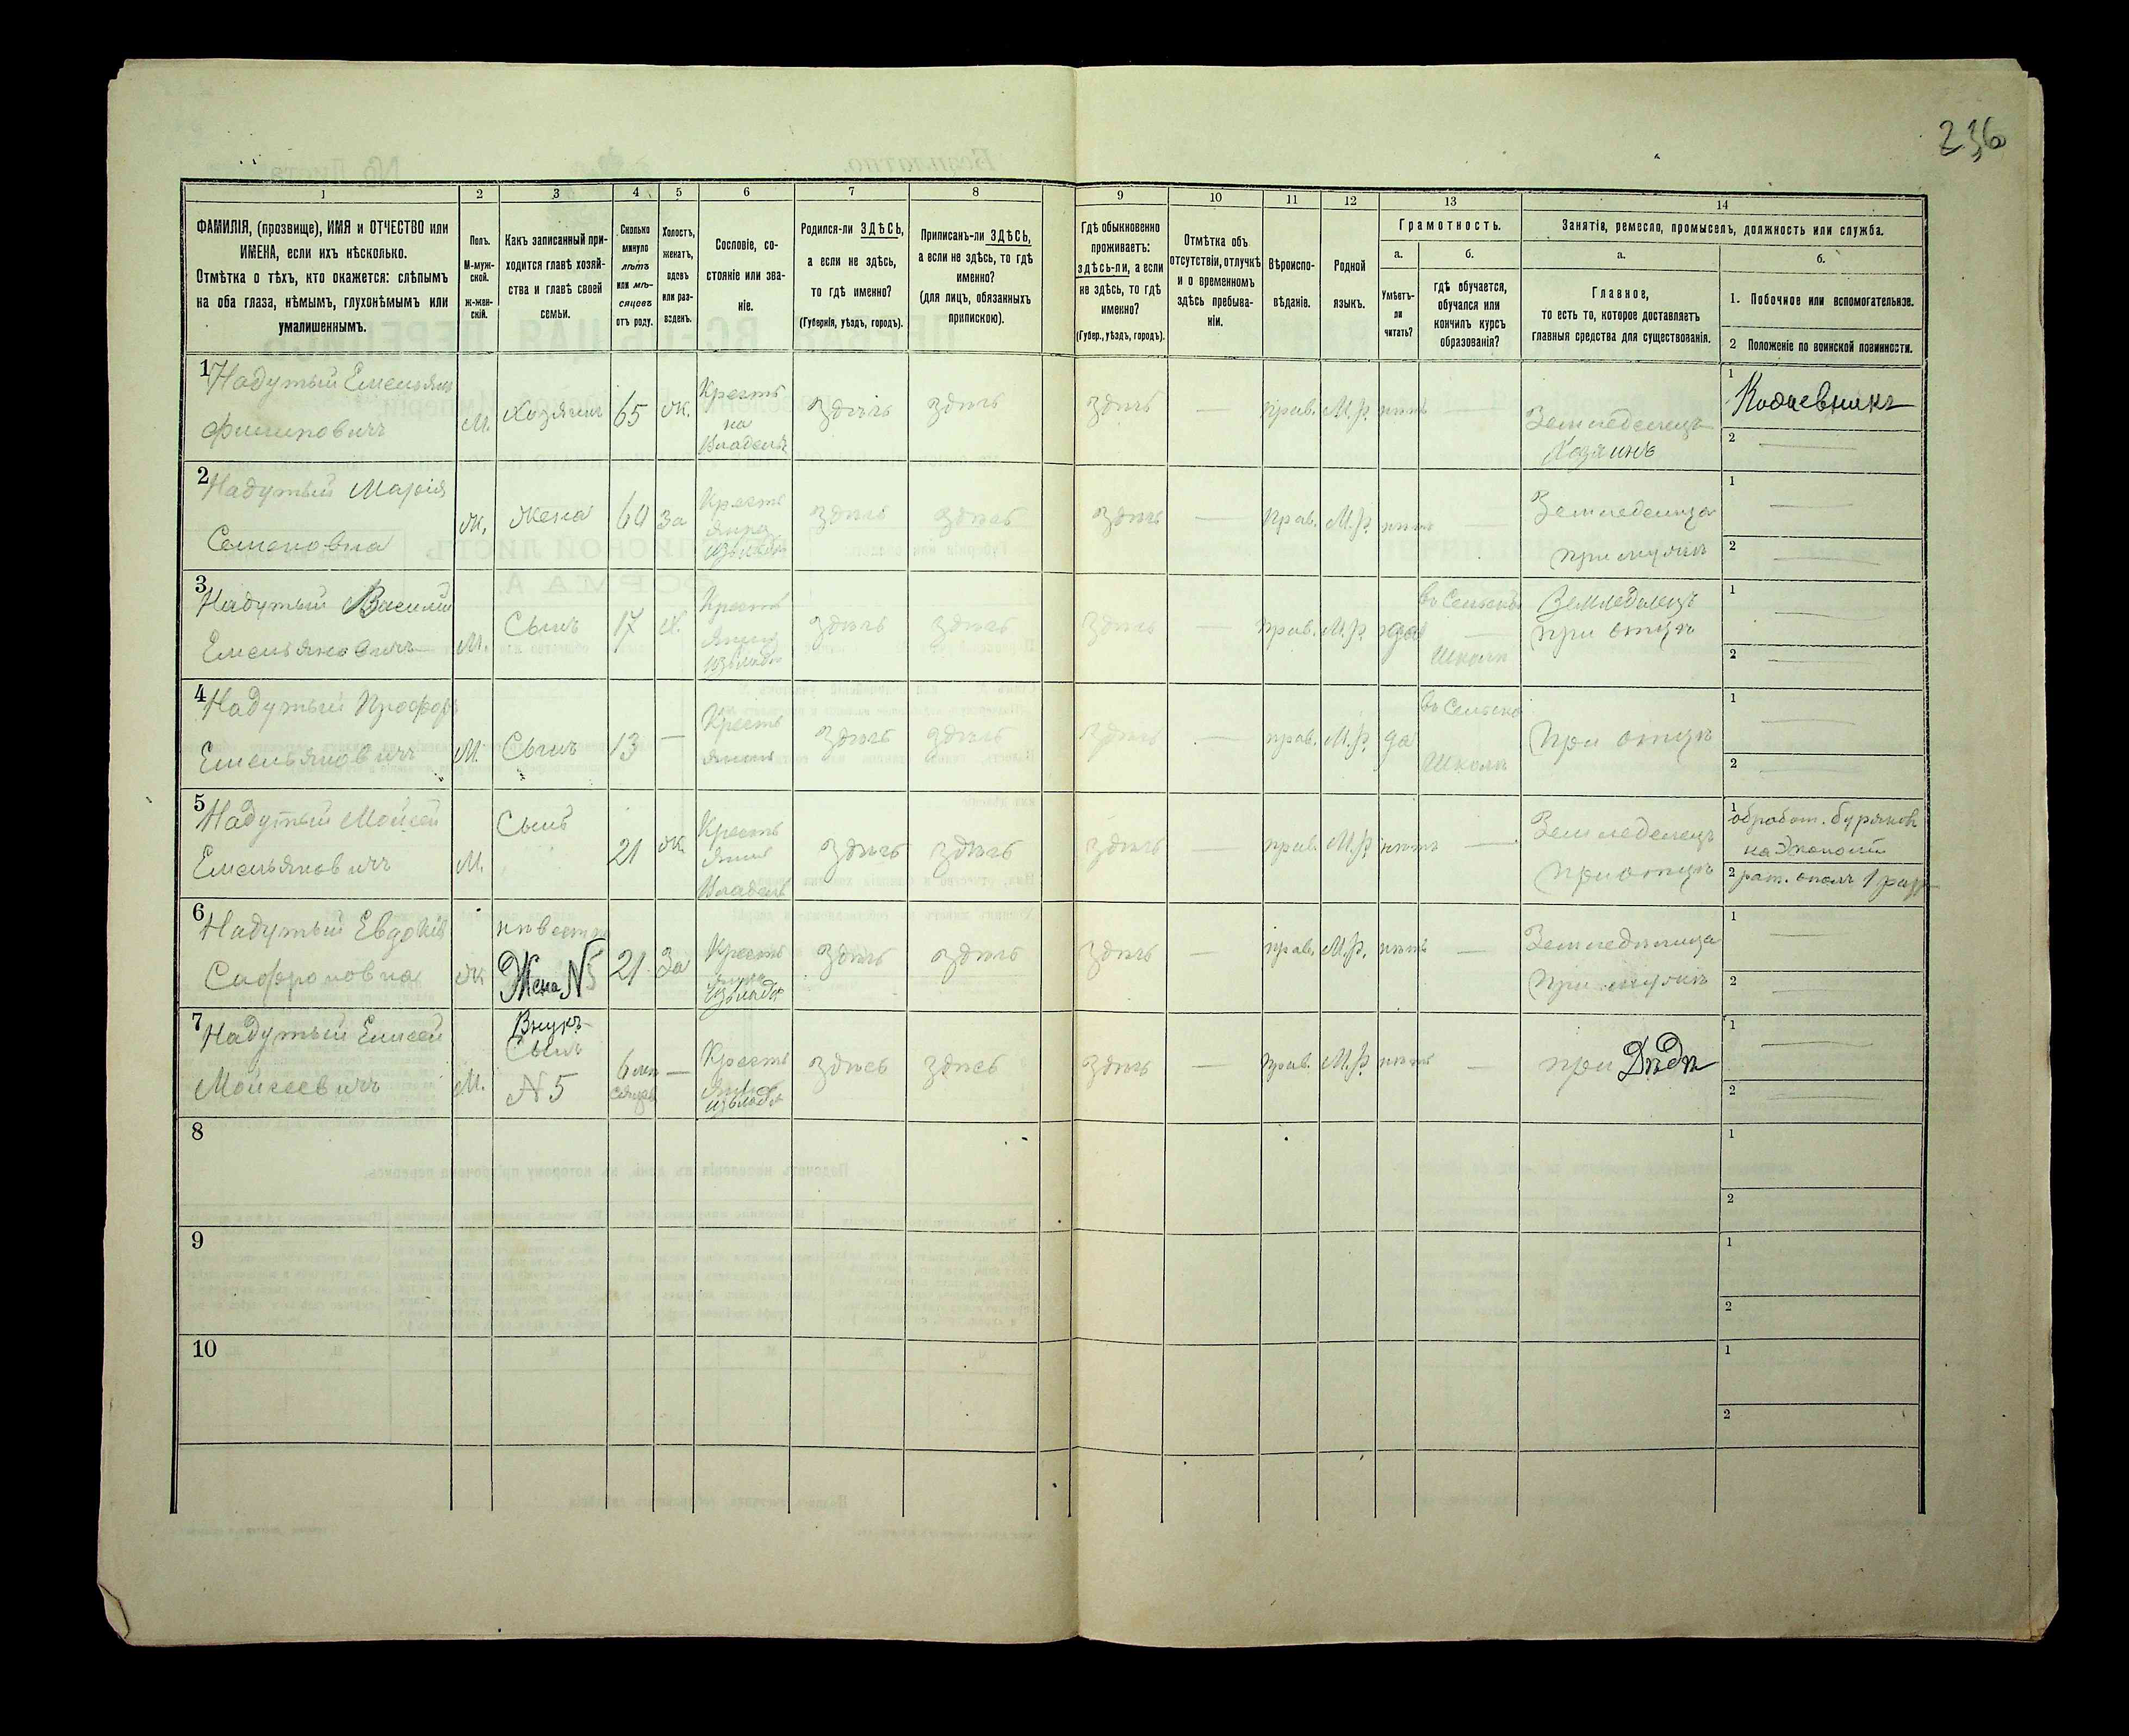 236
1 2 3 4 5 6 7 8 9 10 11 12 13 14
ФАМИЛІЯ, (прозвище), ИМЯ и ОТЧЕСТВО или
ИМЕНА, если ихъ нѣсколько.
Отмѣтка о тѣхъ, кто окажется: слѣпымъ
на оба глаза, нѣмымъ, глухонѣмымъ или
умалишеннымъ.
Полъ.
М-муж-
ской.
ж-жен-
скій.
Какъ записанный при-
ходится главѣ хозяй-
ства и главѣ своей
семьи.
Сколько
минуло
лѣтъ
или мѣ-
сяцевъ
отъ роду.
Холостъ,
женатъ,
вдовъ
или раз-
веденъ.
Сословіе, со-
стояніе или зва-
ніе.
Родился-ли ЗДѢСЬ,
а если не здѣсь,
то гдѣ именно?
(Губернія, уѣздъ, городъ).
Приписанъ-ли ЗДѢСЬ,
а если не здѣсь, то гдѣ
именно?
(для лицъ, обязанныхъ
припискою).
Гдѣ обыкновенно
проживаетъ:
здѣсь-ли, а если
не здѣсь, то гдѣ
именно?
(Губер., уѣздъ, городъ).
Отмѣтка объ
отсутствіи, отлучкѣ
и о временномъ
здѣсь пребыва-
ніи.
Вѣроиспо-
вѣданіе.
Родной
языкъ.
Грамотность.
а.
Умѣетъ-
ли
читать?
б.
гдѣ обучается,
обучался или
кончилъ курсъ
образованія?
Занятія, ремесло, промыселъ, должность или служба.
а.
Главное,
то есть то, которое доставляетъ
главныя средства для существованія.
б.
1. Побочное или вспомогательное.
2 Положеніе по воинской повинности.
1 Надутый Емельянъ
Филиповичъ
М. Хозяинъ 65 ж. Кресть
Владель
здѣсь здѣсь здѣсь — прав. М.р. нѣтъ —
Земледелецъ
Хозяинъ
1
2 —
2 Надутый Марія
Семеновна
ж. жена 60 за Кресть
янка
здѣсь здѣсь здѣсь — Прав. М.р. нѣтъ —
Земледелица
при мужѣ
1 —
2 —
3 Надутый Василий
Емельяновичъ
М. Сынъ 17 х. Кресть
здѣсь здѣсь здѣсь — прав. М.р. да
въ Сельской
Школѣ
Земледелецъ
при отцѣ
1 —
2 —
4 Надутый
Емельяновичъ
М. Сынъ 13 — Кресть
янинъ
здѣсь здѣсь здѣсь — прав. М.р. да
въ Сельско
Школѣ
При отцѣ
1 —
2 —
5 Надутый Мойсей
Емельяновичъ
М. Сынъ 21 ж. Кресть
янинъ
Владель
здѣсь здѣсь здѣсь — прав. М.р. нѣтъ —
Земледелецъ
При отцѣ
1 обработ. буряков
на Экономіи
2 рат. ополч 1 разр
6 Надутый Евдокія
Сафроновна
ж невестка
Жена N5
21 За Кресть
янка
здѣсь здѣсь здѣсь — прав. М.р. нѣтъ —
Земледелица
При мужѣ
1 —
2 —
7 Надутый Елисей
Мойсеевичъ
М. Внукъ
Сынъ
N 5
6 мѣ
сяцевъ
— Кресть
здѣсь здѣсь здѣсь — прав. М.р. нѣтъ —
при Дѣдѣ
1 —
2 —
8
1
2
9
1
2
10
1
2